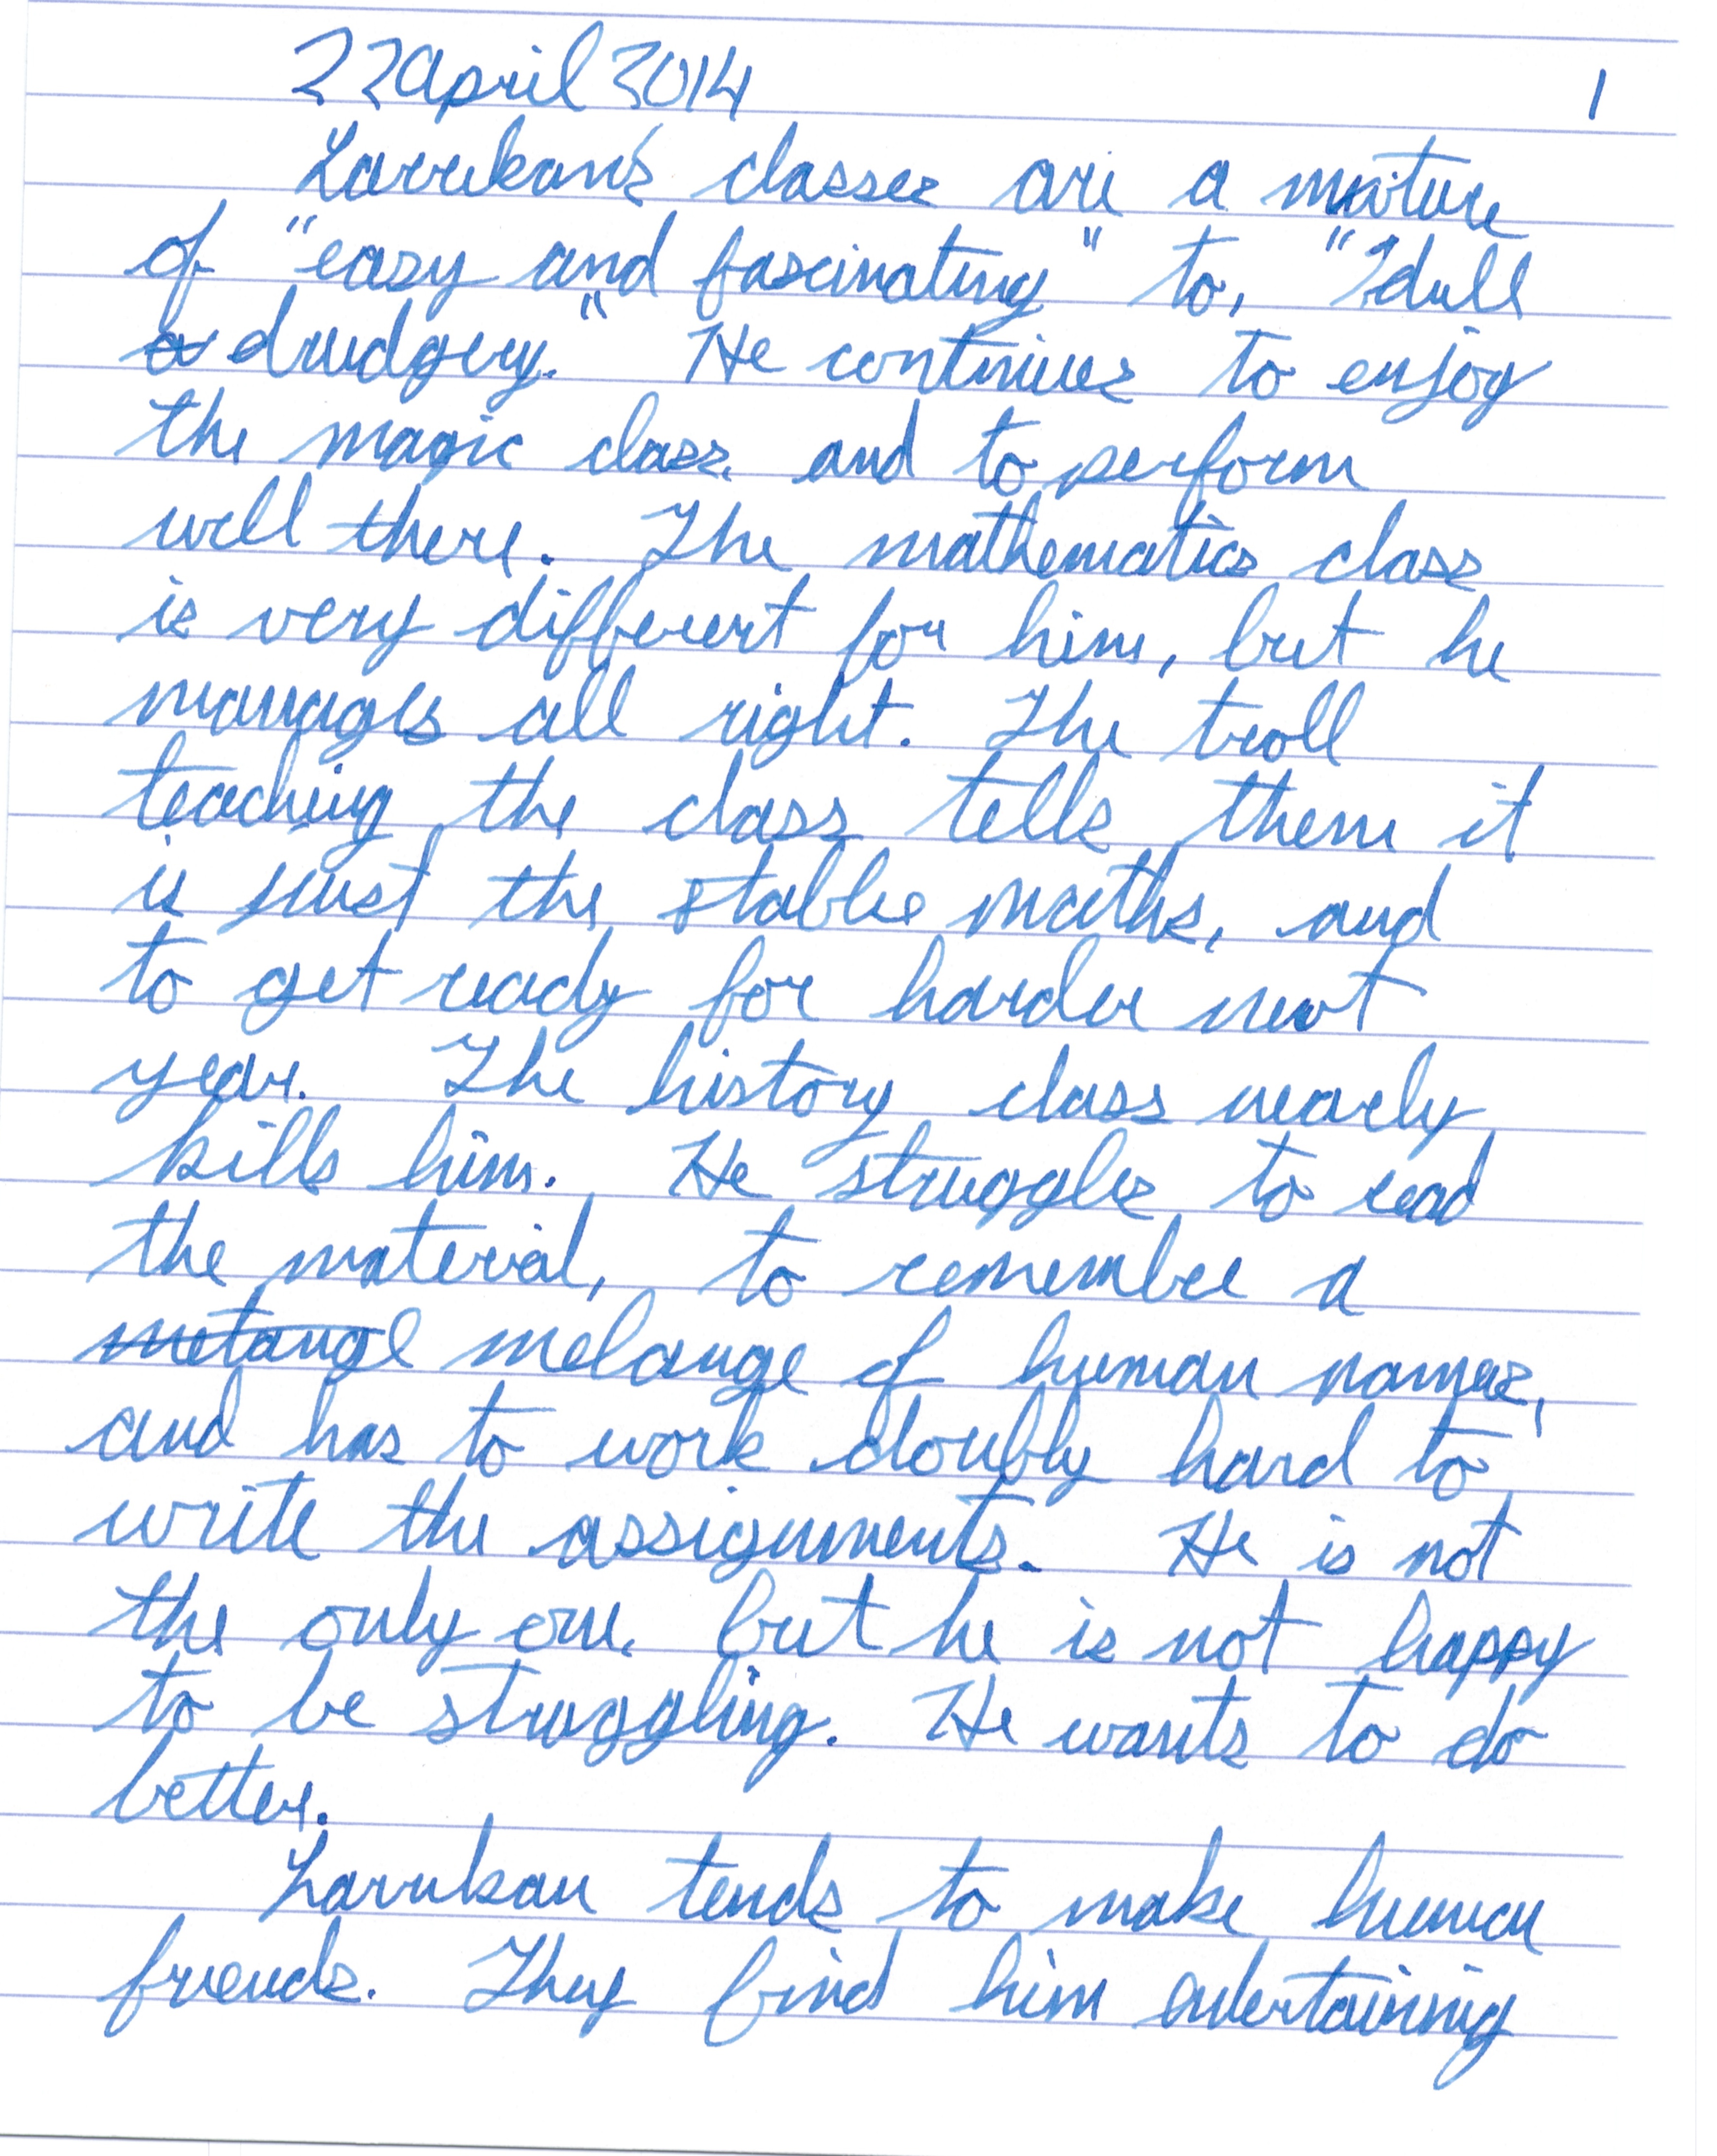 22 April 2014 1
Larrekan's classes are a mixture
of "easy and fascinating" to, "dull
drudgery." He continues to enjoy
the magic class and to perform
well there. The mathematics class
is very different for him, but he
manages all right. The troll
teaching the class tells them it
is just the stable maths, and
to get ready for harder next
year. The history class nearly
kills him. He struggles to read
the material, to remember a
melange of human names,
and has to work doubly hard to
write the assignments. He is not
the only one, but he is not happy
to be struggling. He wants to do
better.
Larrekan tends to make human
friends. They find him entertaining